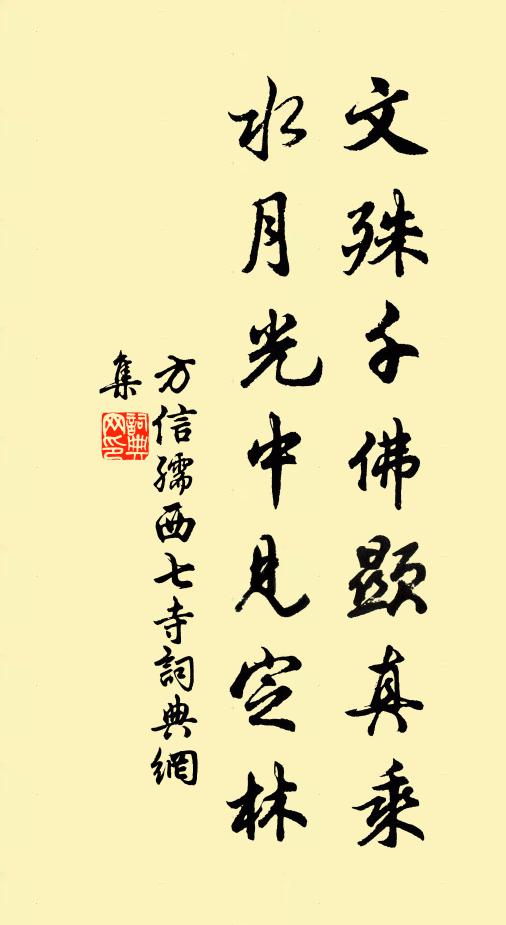 文殊千佛顯真乘
水月光中見定林
方信孺西七寺詞典網
集
詞典
网印